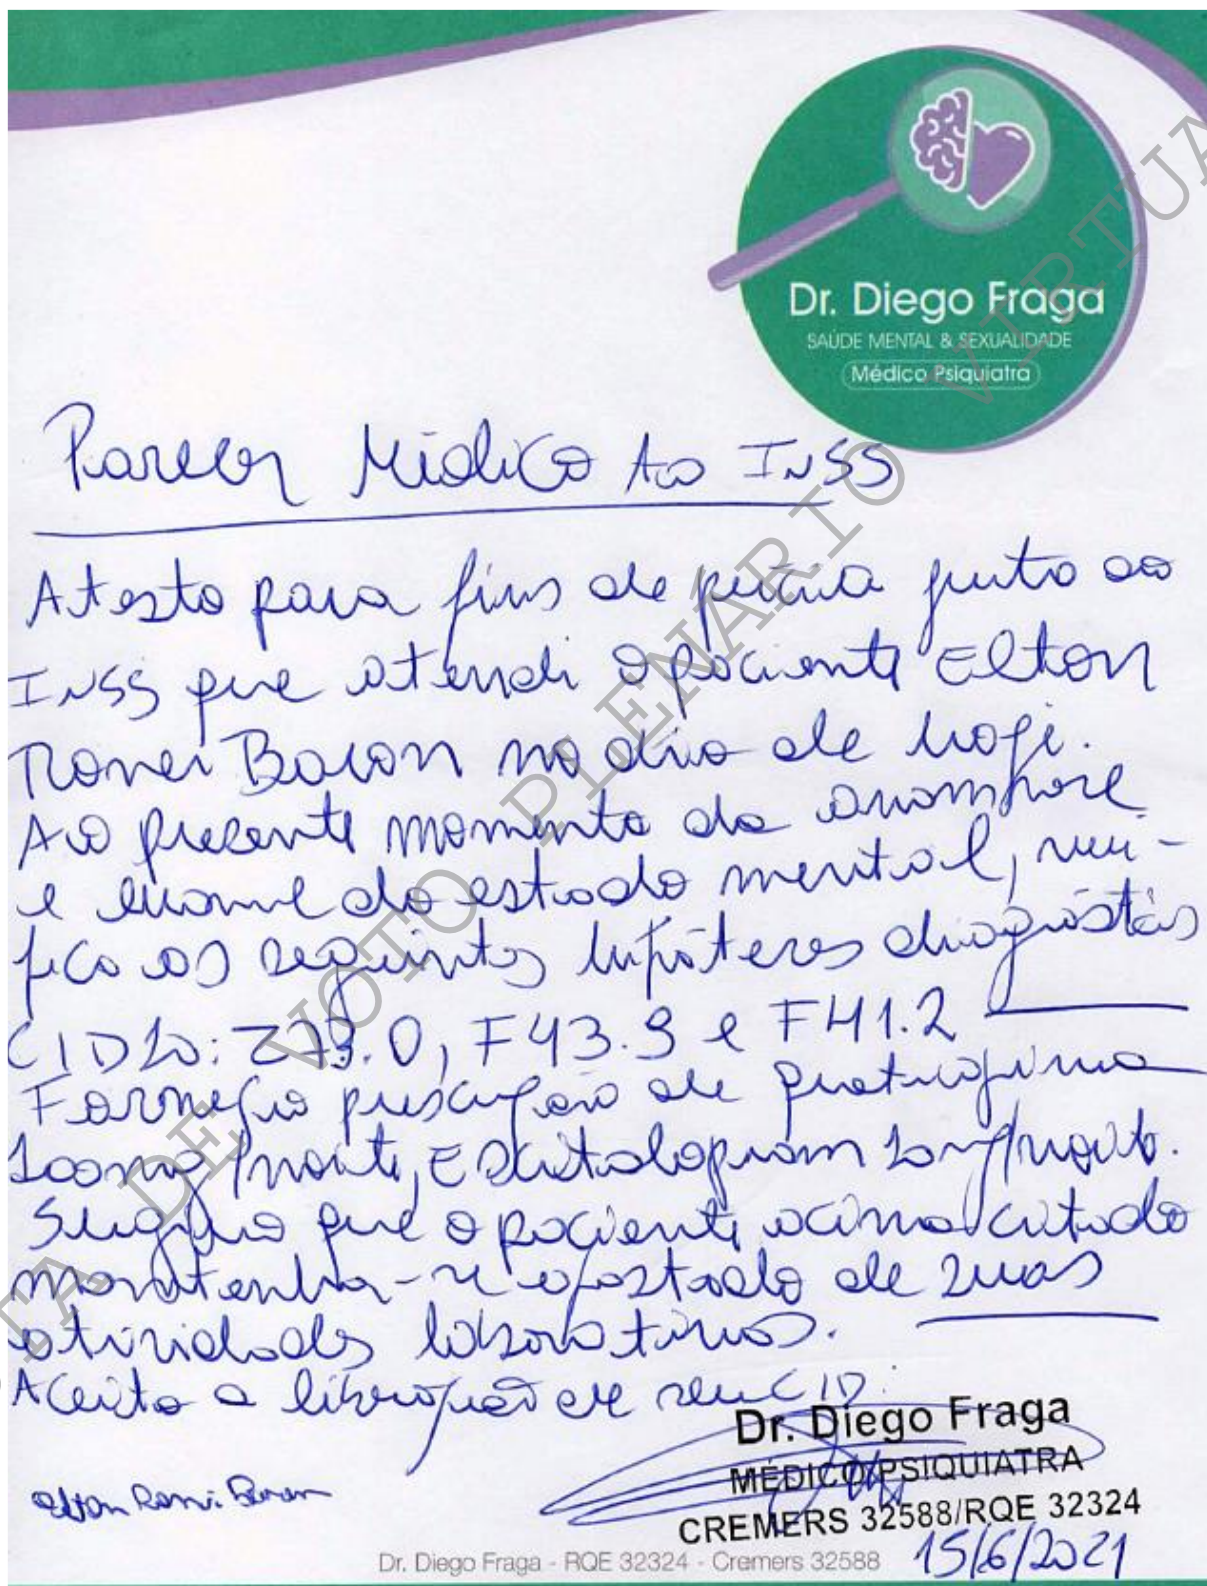 Dr. Diego Fraga
SAÚDE MENTAL & SEXUALIDADE
Médico Psiquiatra
Parecer Médico Ao INSS
Atesto para fins de perícia junto ao
INSS que atendi o paciente Elton
Ronei Baron no dia de hoje.
Ao presente momento da anamnese
e exame do estado mental, veri-
fico as seguintes hipóteses diagnósticas
CID10: Z73.0, F43.9 e F41.2
Forneço prescrição de quetiapina
100mg/noite, Escitalopram 10mg/noite.
Sugiro que o paciente acima citado
mantenha-se afastado de suas
atividades laborativas.
Aceito a liberação de seu CID.
Dr. Diego Fraga
MÉDICO PSIQUIATRA
CREMERS 32588/RQE 32324
15/6/2021
Dr. Diego Fraga - RQE 32324 - Cremers 32588
DE VOTO PLENARIO VIRTUA